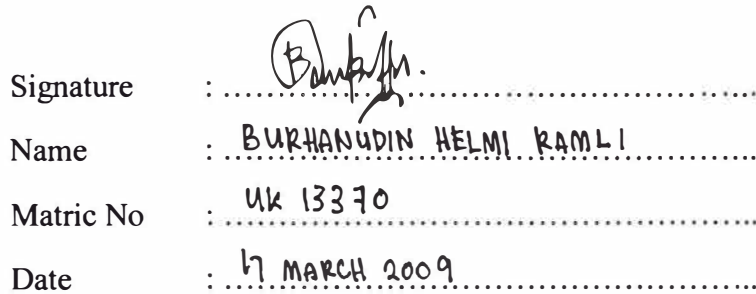 Signature :
Name : BURHANUDIN HELMI RAMLI
Matric No : UK 13370
Date : 17 MARCH 2009